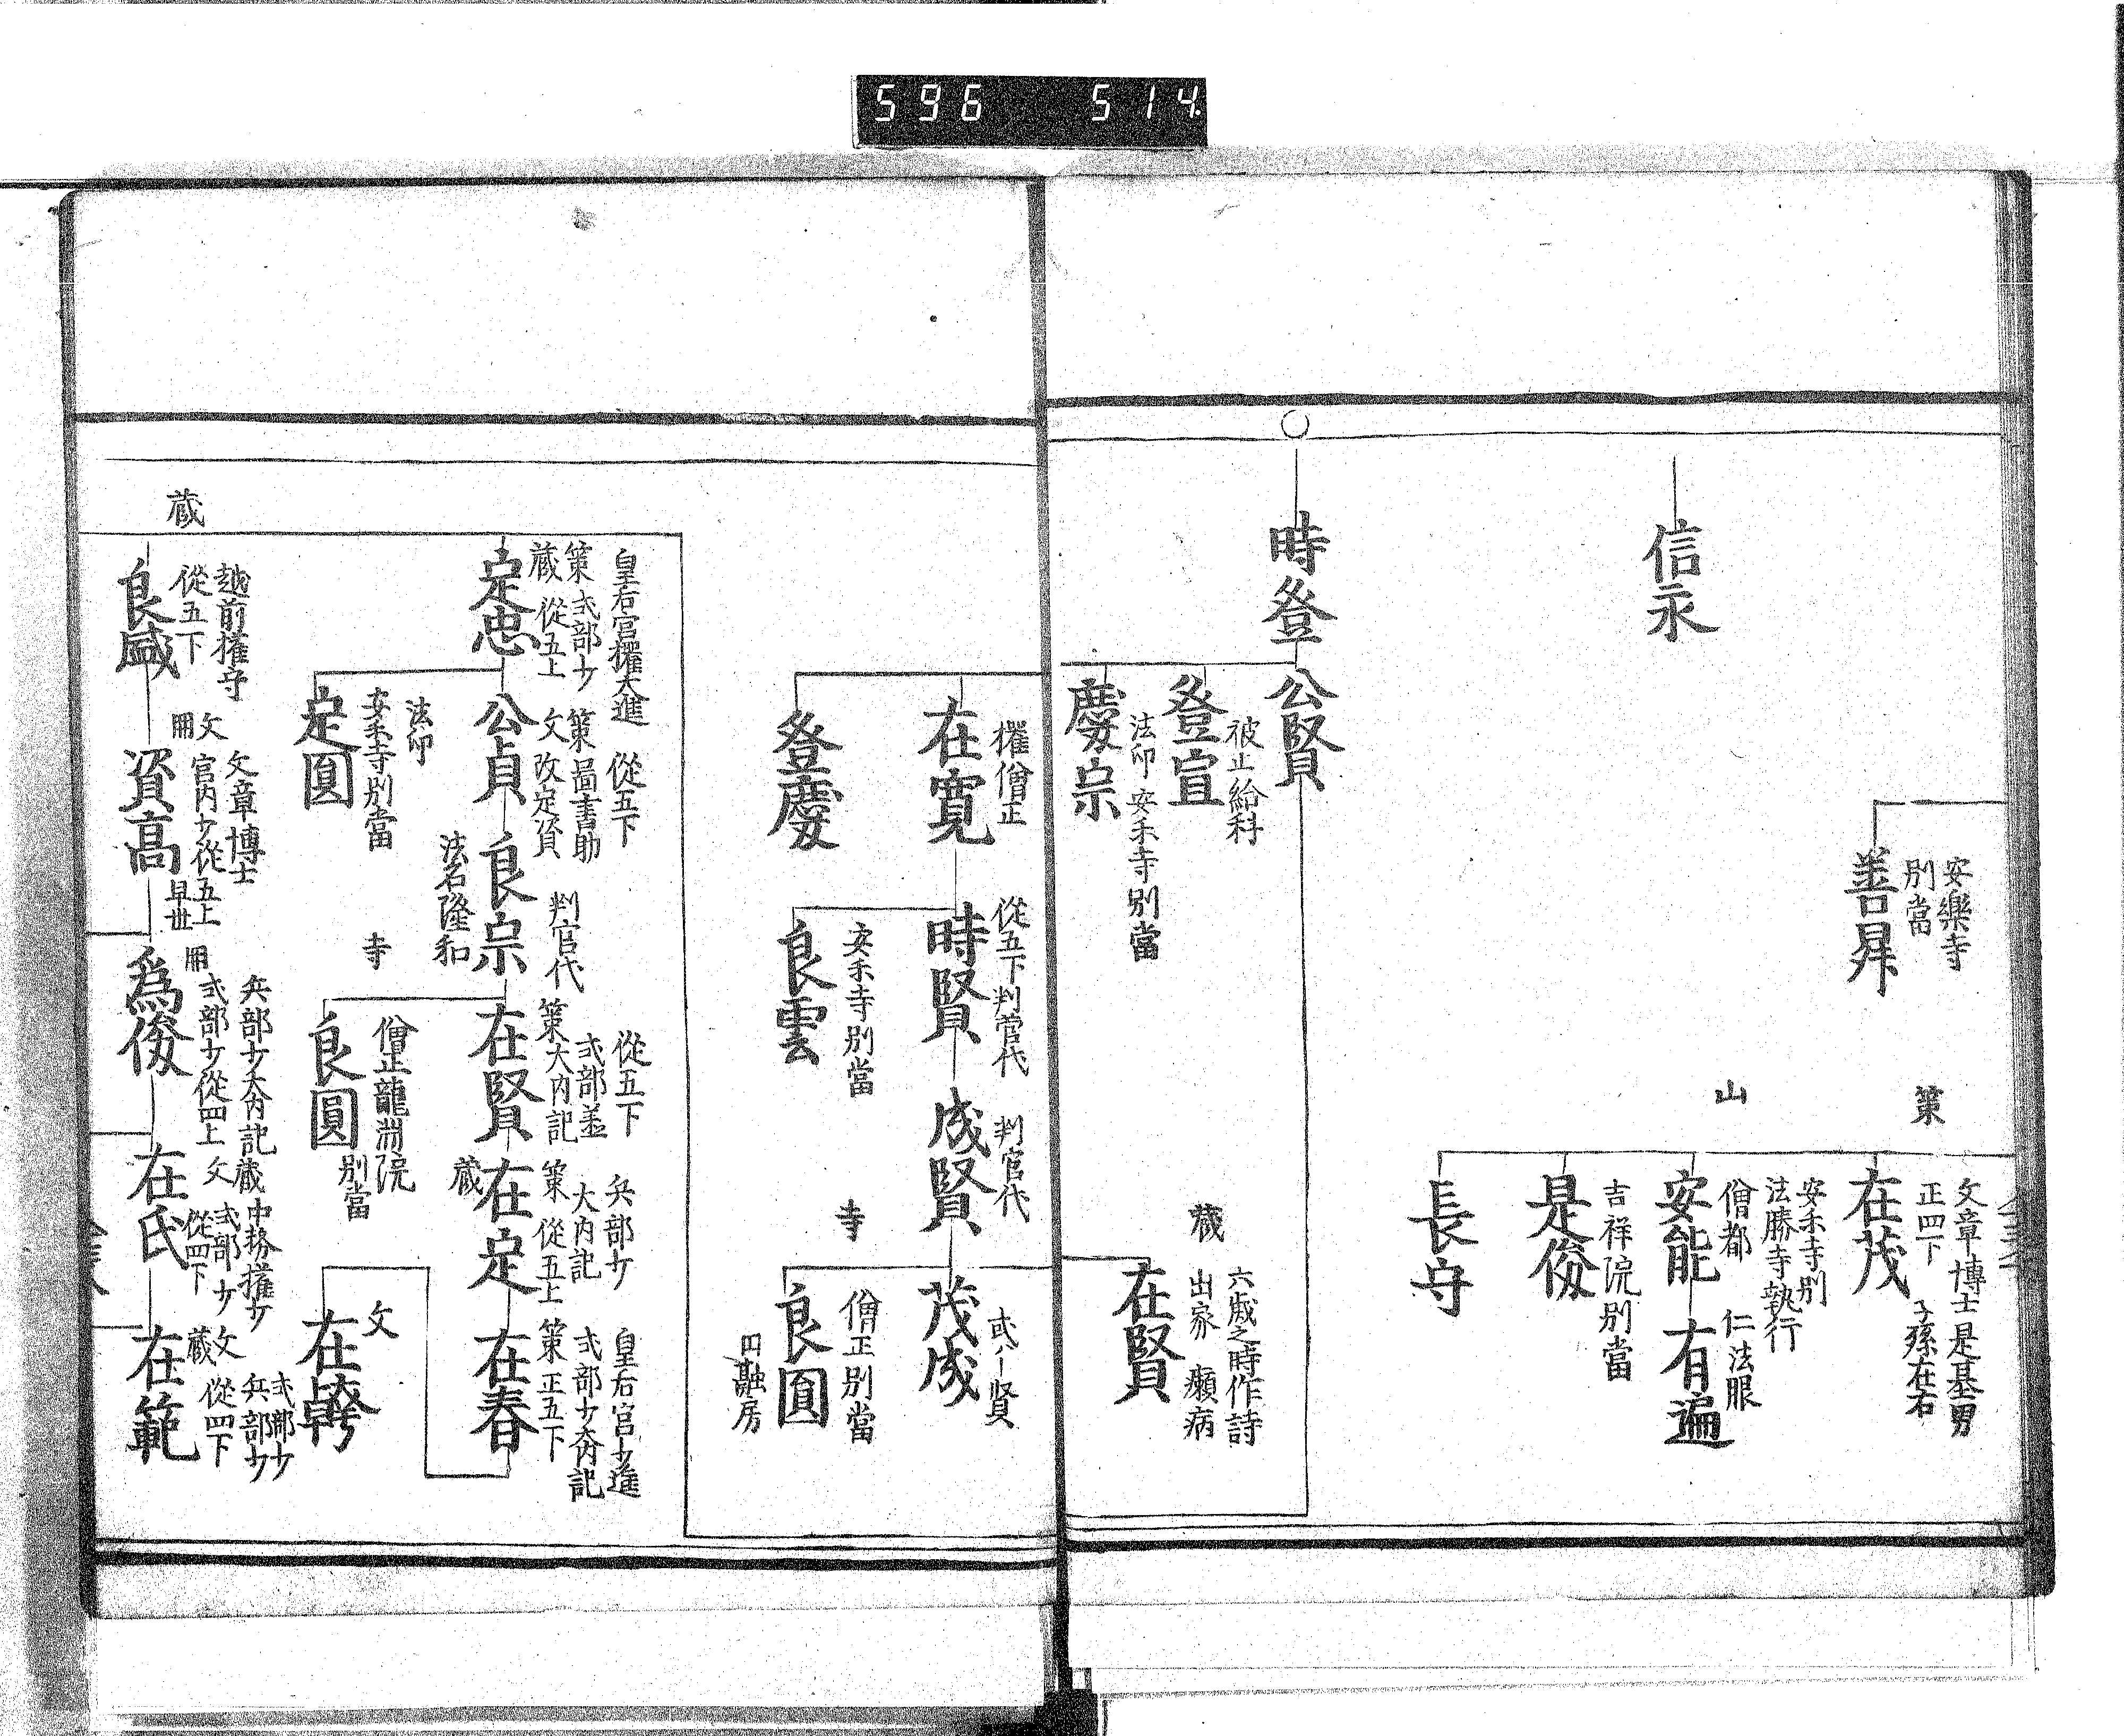 596 514
安樂寺
別當
善昇
策
文章博士是基男
正四下
子孫在右
在茂
山
安禾寺別
法勝寺執行
僧都
安能
仁法眼
有遍
吉祥院別當
是俊
長守
信永
時登
公賢
被止給科
登宣
法印 安禾寺別當
慶宗
藏
六歳之時作詩
出家 癩病
在賢
權僧正
在寛
登慶
從五下判菅代
時賢
安禾寺別當
良雲
判官代
成賢
寺
茂成
僧正別當
良圓
円融房
皇后宮權大進
策 式部少
藏 從五上
定忠
從五下
策圖書助
文 改定資
公貞
法印
安禾寺別當
定圓
判官代
良宗
法名隆和
寺
僧正龍洲院
別當
良圓
從五下
式部丞
策大内記
在賢
兵部少
大内記
策 從五上
藏
在定
皇后宮少進
式部少大内記
策 正五下
在春
文
藏
越前權守
從五下
良盛
文
文章博士
宮内少從五上
早世
資高
兵部少大内記
式部少從四上
爲俊
藏 中務權少
文 式部少
從四下
在氏
文
藏
式部少
兵部少
從四下
在範